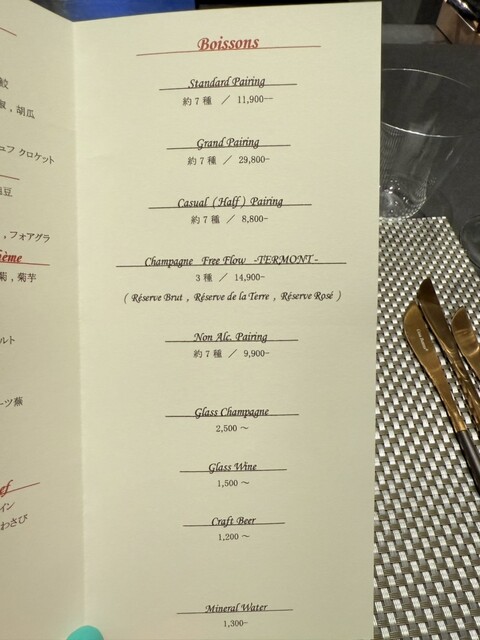 鮫
椒 , 胡瓜
ュフ クロケット
豆
, フォアグラ
ème
菊 , 菊芋
ルト
ーツ蕪
ef
イン
わさび
Boissons
Standard Pairing
約 7 種 ／ 11,900-
Grand Pairing
約 7 種 ／ 29,800-
Casual ( Half ) Pairing
約 7 種 ／ 8,800-
Champagne Free Flow -TERMONT-
3 種 ／ 14,900-
( Réserve Brut , Réserve de la Terre , Réserve Rosé )
Non Alc. Pairing
約 7 種 ／ 9,900-
Glass Champagne
2,500 ～
Glass Wine
1,500 ～
Craft Beer
1,200 ～
Mineral Water
1,300-